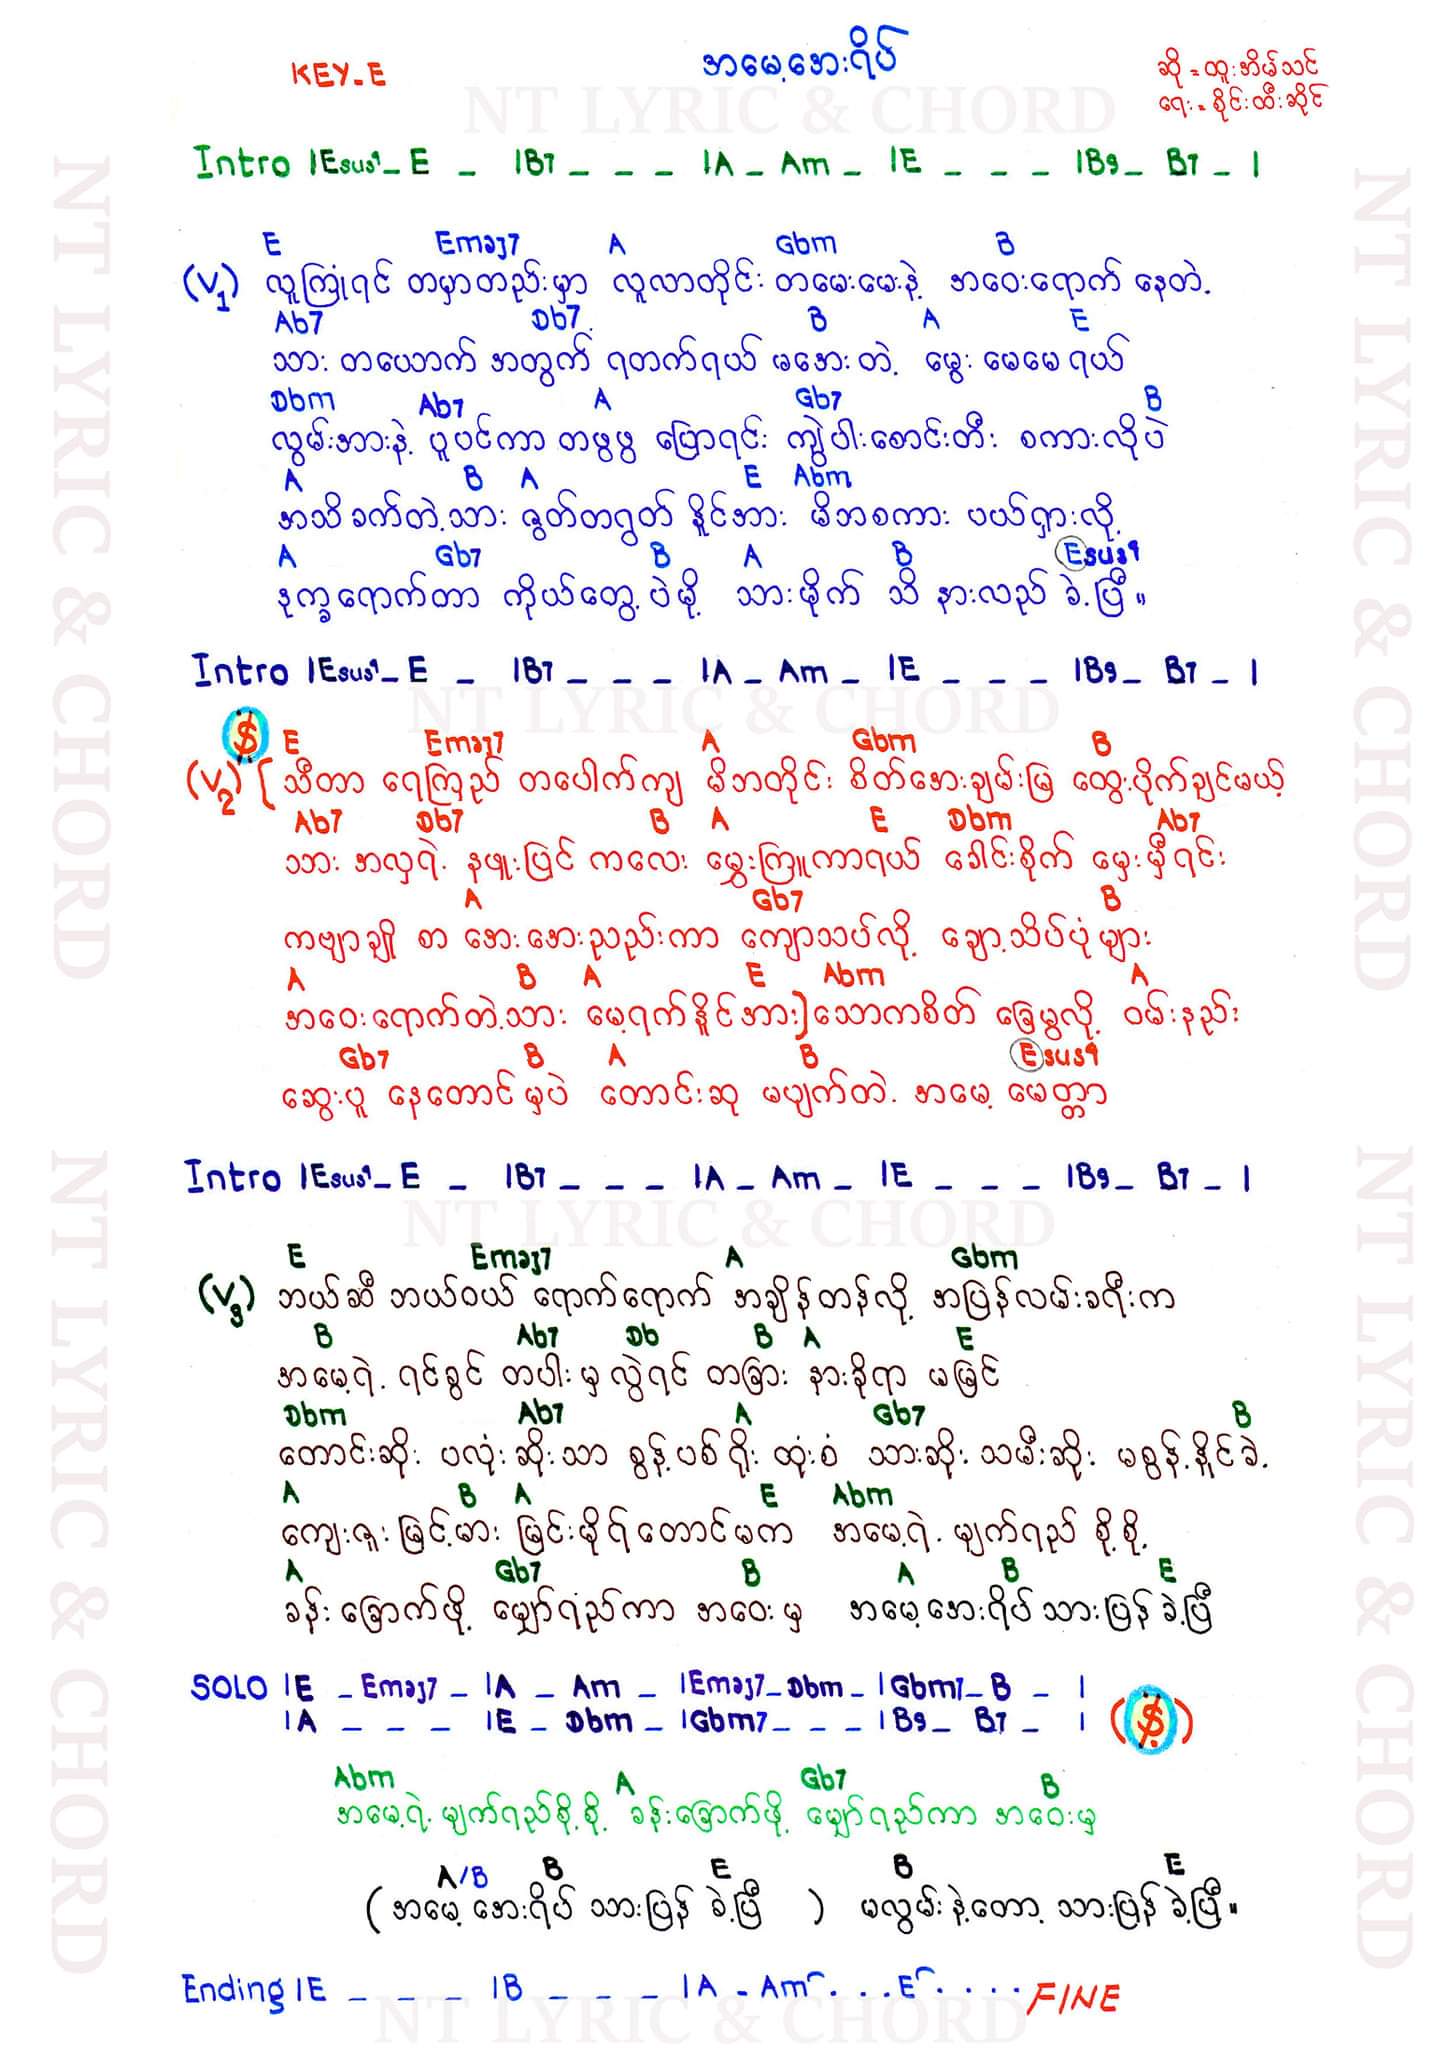 KEY-E
အမေ့အေးရိပ်
ဆို = ထူးအိမ်သင်
ရေး = စိုင်းထီးဆိုင်
NT LYRIC & CHORD
Intro |Esus4_ E _ |B7 _ _ _ |A _ Am _ |E _ _ _ |B9_ B7 _ |
E Emaj7 A Gbm B
(V1) လူကြုံရင် တမှာတည်းမှာ လူလာတိုင်း တမေးမေးနဲ့ အဝေးရောက် နေတဲ့
Ab7 Db7 B A E
သား တယောက် အတွက် ရတက်ရယ် မအေးတဲ့ မွေး မေမေ ရယ်
Dbm Ab7 A Gb7 B
လွမ်းအားနဲ့ ပူပင်ကာ တဖွဖွ ပြောရင်း ကျွဲပါးစောင်းတီး စကားလိုပဲ
A B A E Abm
အသိခက်တဲ့သား ဇွတ်တရွတ် နိူင်အား မိဘစကား ပယ်ရှားလို့
A Gb7 B A B Esus4
ဒုက္ခရောက်တာ ကိုယ်တွေ့ပဲမို့ သားမိုက် သိ နားလည် ခဲ့ပြီ။
Intro |Esus4_ E _ |B7 _ _ _ |A _ Am _ |E _ _ _ |B9_ B7 _ |
NT LYRIC & CHORD
$
E Emaj7 A Gbm B
(V2) [ သီတာ ရေကြည် တပေါက်ကျ မိဘတိုင်း စိတ်အေးချမ်းမြ ထွေးပိုက်ချင်မယ့်
Ab7 Db7 B A E Dbm Ab7
သား အလှရဲ့ နဖူးပြင် ကလေး မွှေးကြူကာရယ် ခေါင်းစိုက် မှေးမှီရင်း
A Gb7 B
ကဗျာချို စာ အေးအေးညည်းကာ ကျောသပ်လို့ ချော့သိပ်ပုံများ
A B A E Abm A
အဝေးရောက်တဲ့သား မေ့ရက်နိူင်အား] သောကစိတ် ခြေမွလို့ ဝမ်းနည်း
Gb7 B A B Esus4
ဆွေးပူ နေတောင်မှပဲ တောင်းဆု မပျက်တဲ့ အမေ့ မေတ္တာ
Intro |Esus4_ E _ |B7 _ _ _ |A _ Am _ |E _ _ _ |B9_ B7 _ |
NT LYRIC & CHORD
E Emaj7 A Gbm
(V3) ဘယ်ဆီ ဘယ်ဝယ် ရောက်ရောက် အချိန်တန်လို့ အပြန်လမ်းခရီးက
B Ab7 Db B A E
အမေ့ရဲ့ ရင်ခွင် တပါးမှလွဲရင် တခြား နားခိုရာ မမြင်
Dbm Ab7 A Gb7 B
တောင်းဆိုး ပလုံးဆိုးသာ စွန့်ပစ်ရိုး ထုံးစံ သားဆိုး သမီးဆိုး မစွန့်နိူင်ခဲ့
A B A E Abm
ကျေးဇူး မြင့်မား မြင်းမိုရ်တောင်မက အမေ့ရဲ့ မျက်ရည် စို့စို့
A Gb7 B A B E
ခန်းခြောက်ဖို့ မျှော်ရည်ကာ အဝေးမှ အမေ့အေးရိပ် သားပြန် ခဲ့ပြီ
SOLO |E _ Emaj7 _ |A _ Am _ |Emaj7_Dbm_ |Gbm7_B _ |
|A _ _ _ |E _ Dbm _ |Gbm7_ _ _ |B9_ B7 _ | ($)
Abm A Gb7 B
အမေ့ရဲ့ မျက်ရည်စို့စို့ ခန်းခြောက်ဖို့ မျှော်ရည်ကာ အဝေးမှ
A/B B E B E
(အမေ့ အေးရိပ် သားပြန် ခဲ့ပြီ ) မလွမ်းနဲ့တော့ သားပြန် ခဲ့ပြီ။
Ending |E _ _ _ |B _ _ _ |A . Am . . . E . . . . FINE
NT LYRIC & CHORD
NT LYRIC & CHORD
NT LYRIC & CHORD
NT LYRIC & CHORD
NT LYRIC & CHORD